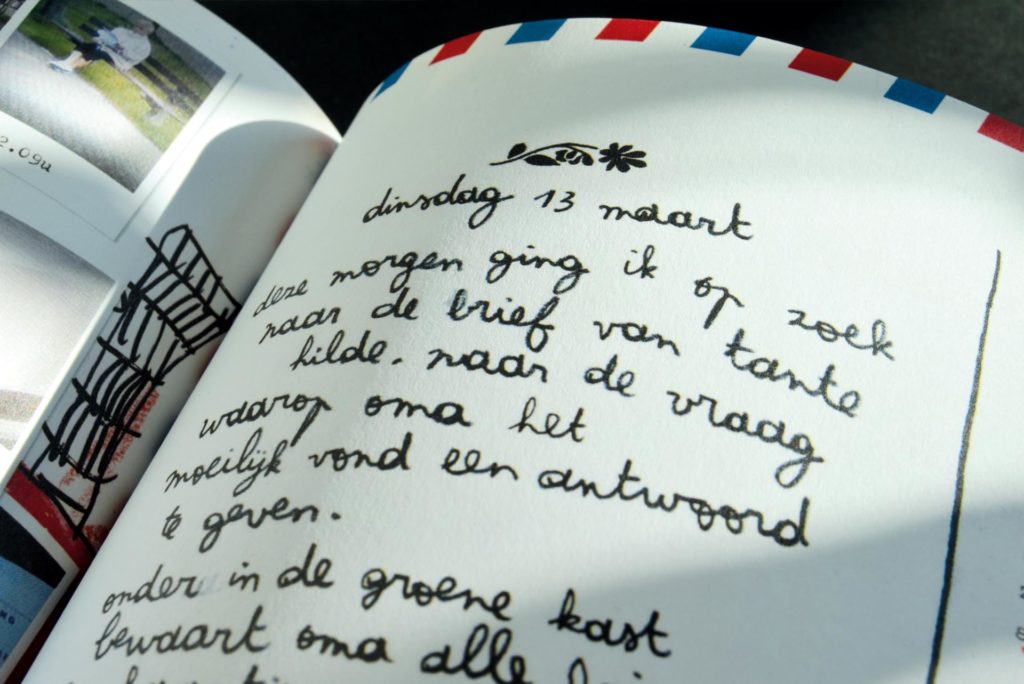 2.09u
dinsdag 13 maart
deze morgen ging ik op zoek
naar de brief van tante
hilde. naar de vraag
waarop oma het
moeilijk vond een antwoord
te geven.
onder in de groene kast
bewaart oma alle